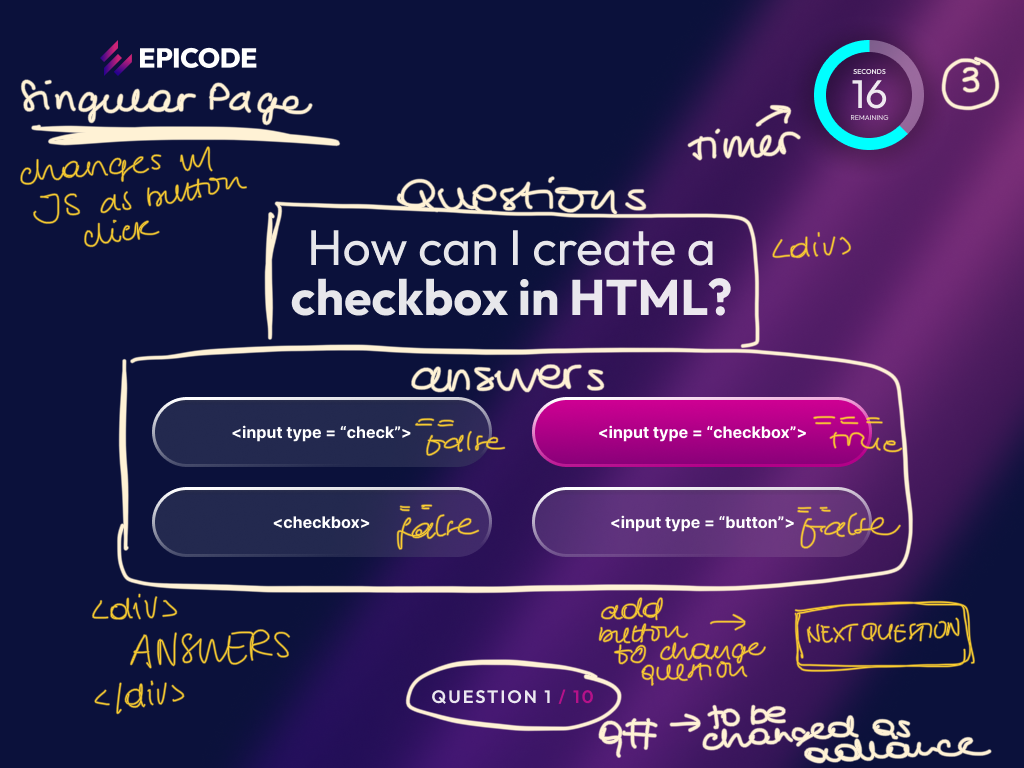 EPICODE
Singular Page
changes w/
JS as button
click
SECONDS
16
REMAINING
3
Timer
Questions
How can I create a
checkbox in HTML?
<div>
answers
<input type = “check”>
== false
<input type = “checkbox”>
=== true
<checkbox>
== false
<input type = “button”>
== false
<div>
ANSWERS
</div>
add
button →
to change
question
NEXT QUESTION
QUESTION 1 / 10
q# → to be
changed as
advance